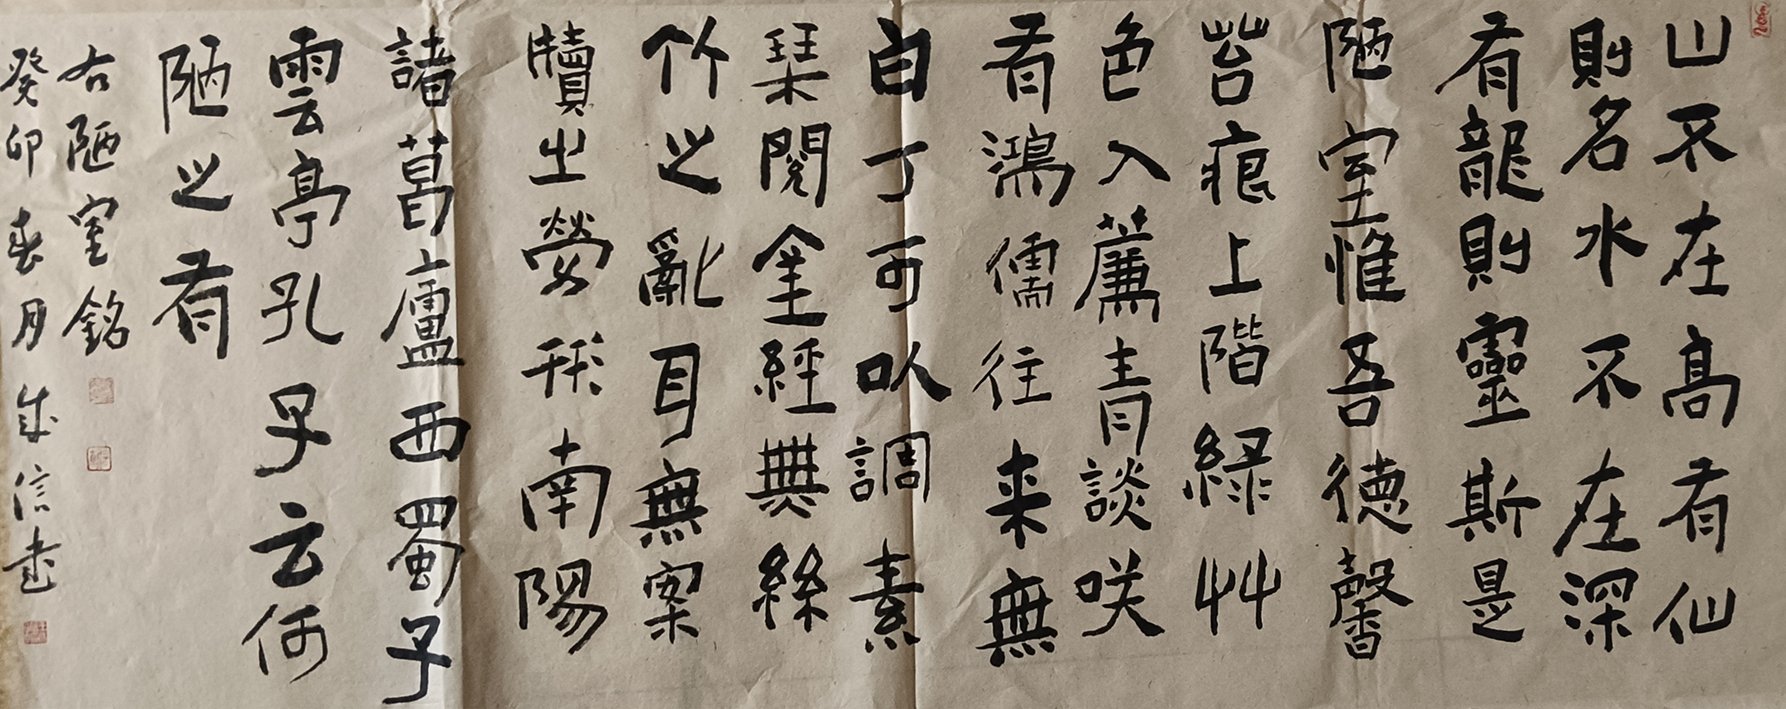 山不在高有仙
則名水不在深
有龍則靈斯是
陋室惟吾德馨
苔痕上階綠艸
色入薕青談咲
有鴻儒往来無
白丁可以調素
琹閱金經無絲
竹之亂耳無案
牘之勞形南陽
諸葛廬西蜀子
雲亭孔子云何
陋之有
右陋室銘
癸卯春月 信書